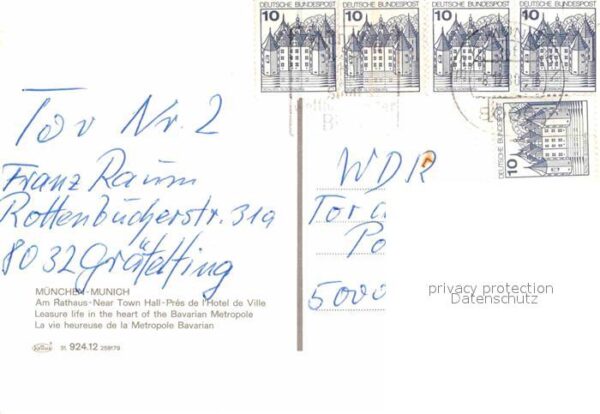 10 DEUTSCHE BUNDESPOST
10 DEUTSCHE BUNDESPOST
10 DEUTSCHE BUNDESPOST
10 DEUTSCHE BUNDESPOST
10 DEUTSCHE BUNDESPOST
Tor Nr. 2
Franz Raum
Rottenbucherstr. 31a
8032 Gräfelfing
MÜNCHEN-MUNICH
Am Rathaus-Near Town Hall-Prés de l'Hotel de Ville
Leasure life in the heart of the Bavarian Metropole
La vie heureuse de la Metropole Bavarian
31. 924.12 258179
WDR
Tor
Po
5000
privacy protection
Datenschutz